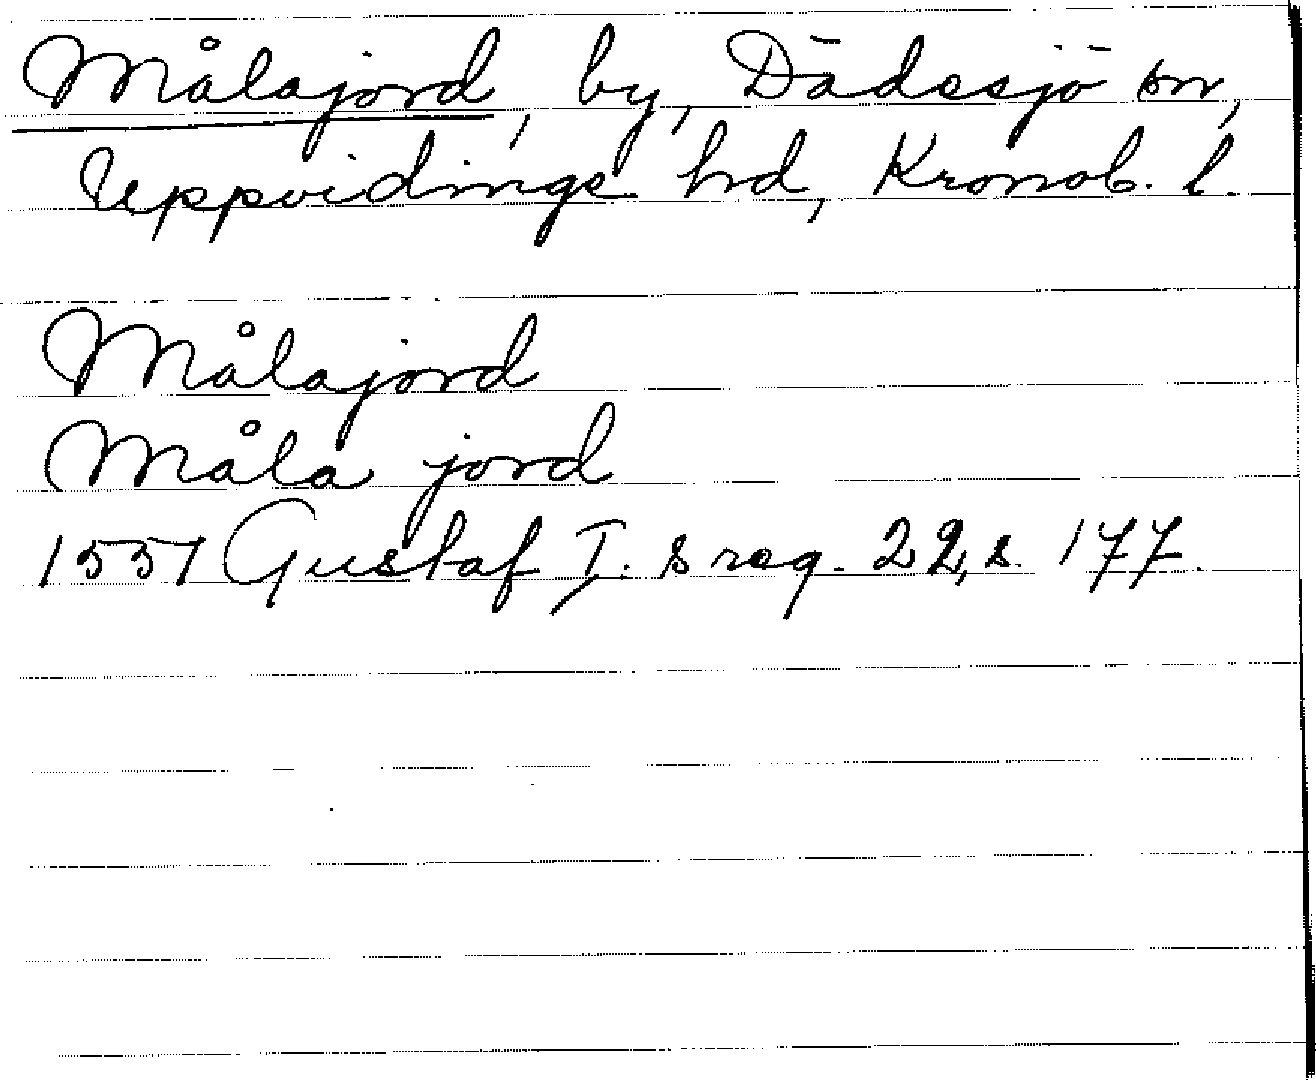 Målajord, by, Dädesjö sn,
Uppvidinge hd, Kronob. l.
Målajord
Måla jord
1551 Gustaf I. s reg. 22, s. 177.